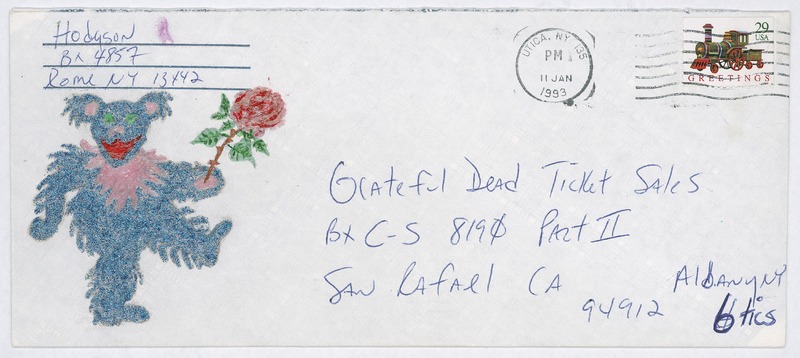 Hodgson
Bx 4857
Rome NY 13442
UTICA, NY 135
PM
11 JAN
1993
29
USA
GREETINGS
Grateful Dead Ticket Sales
Bx C-S 8190 Part II
San Rafael CA
94912
Albany NY
6 tics